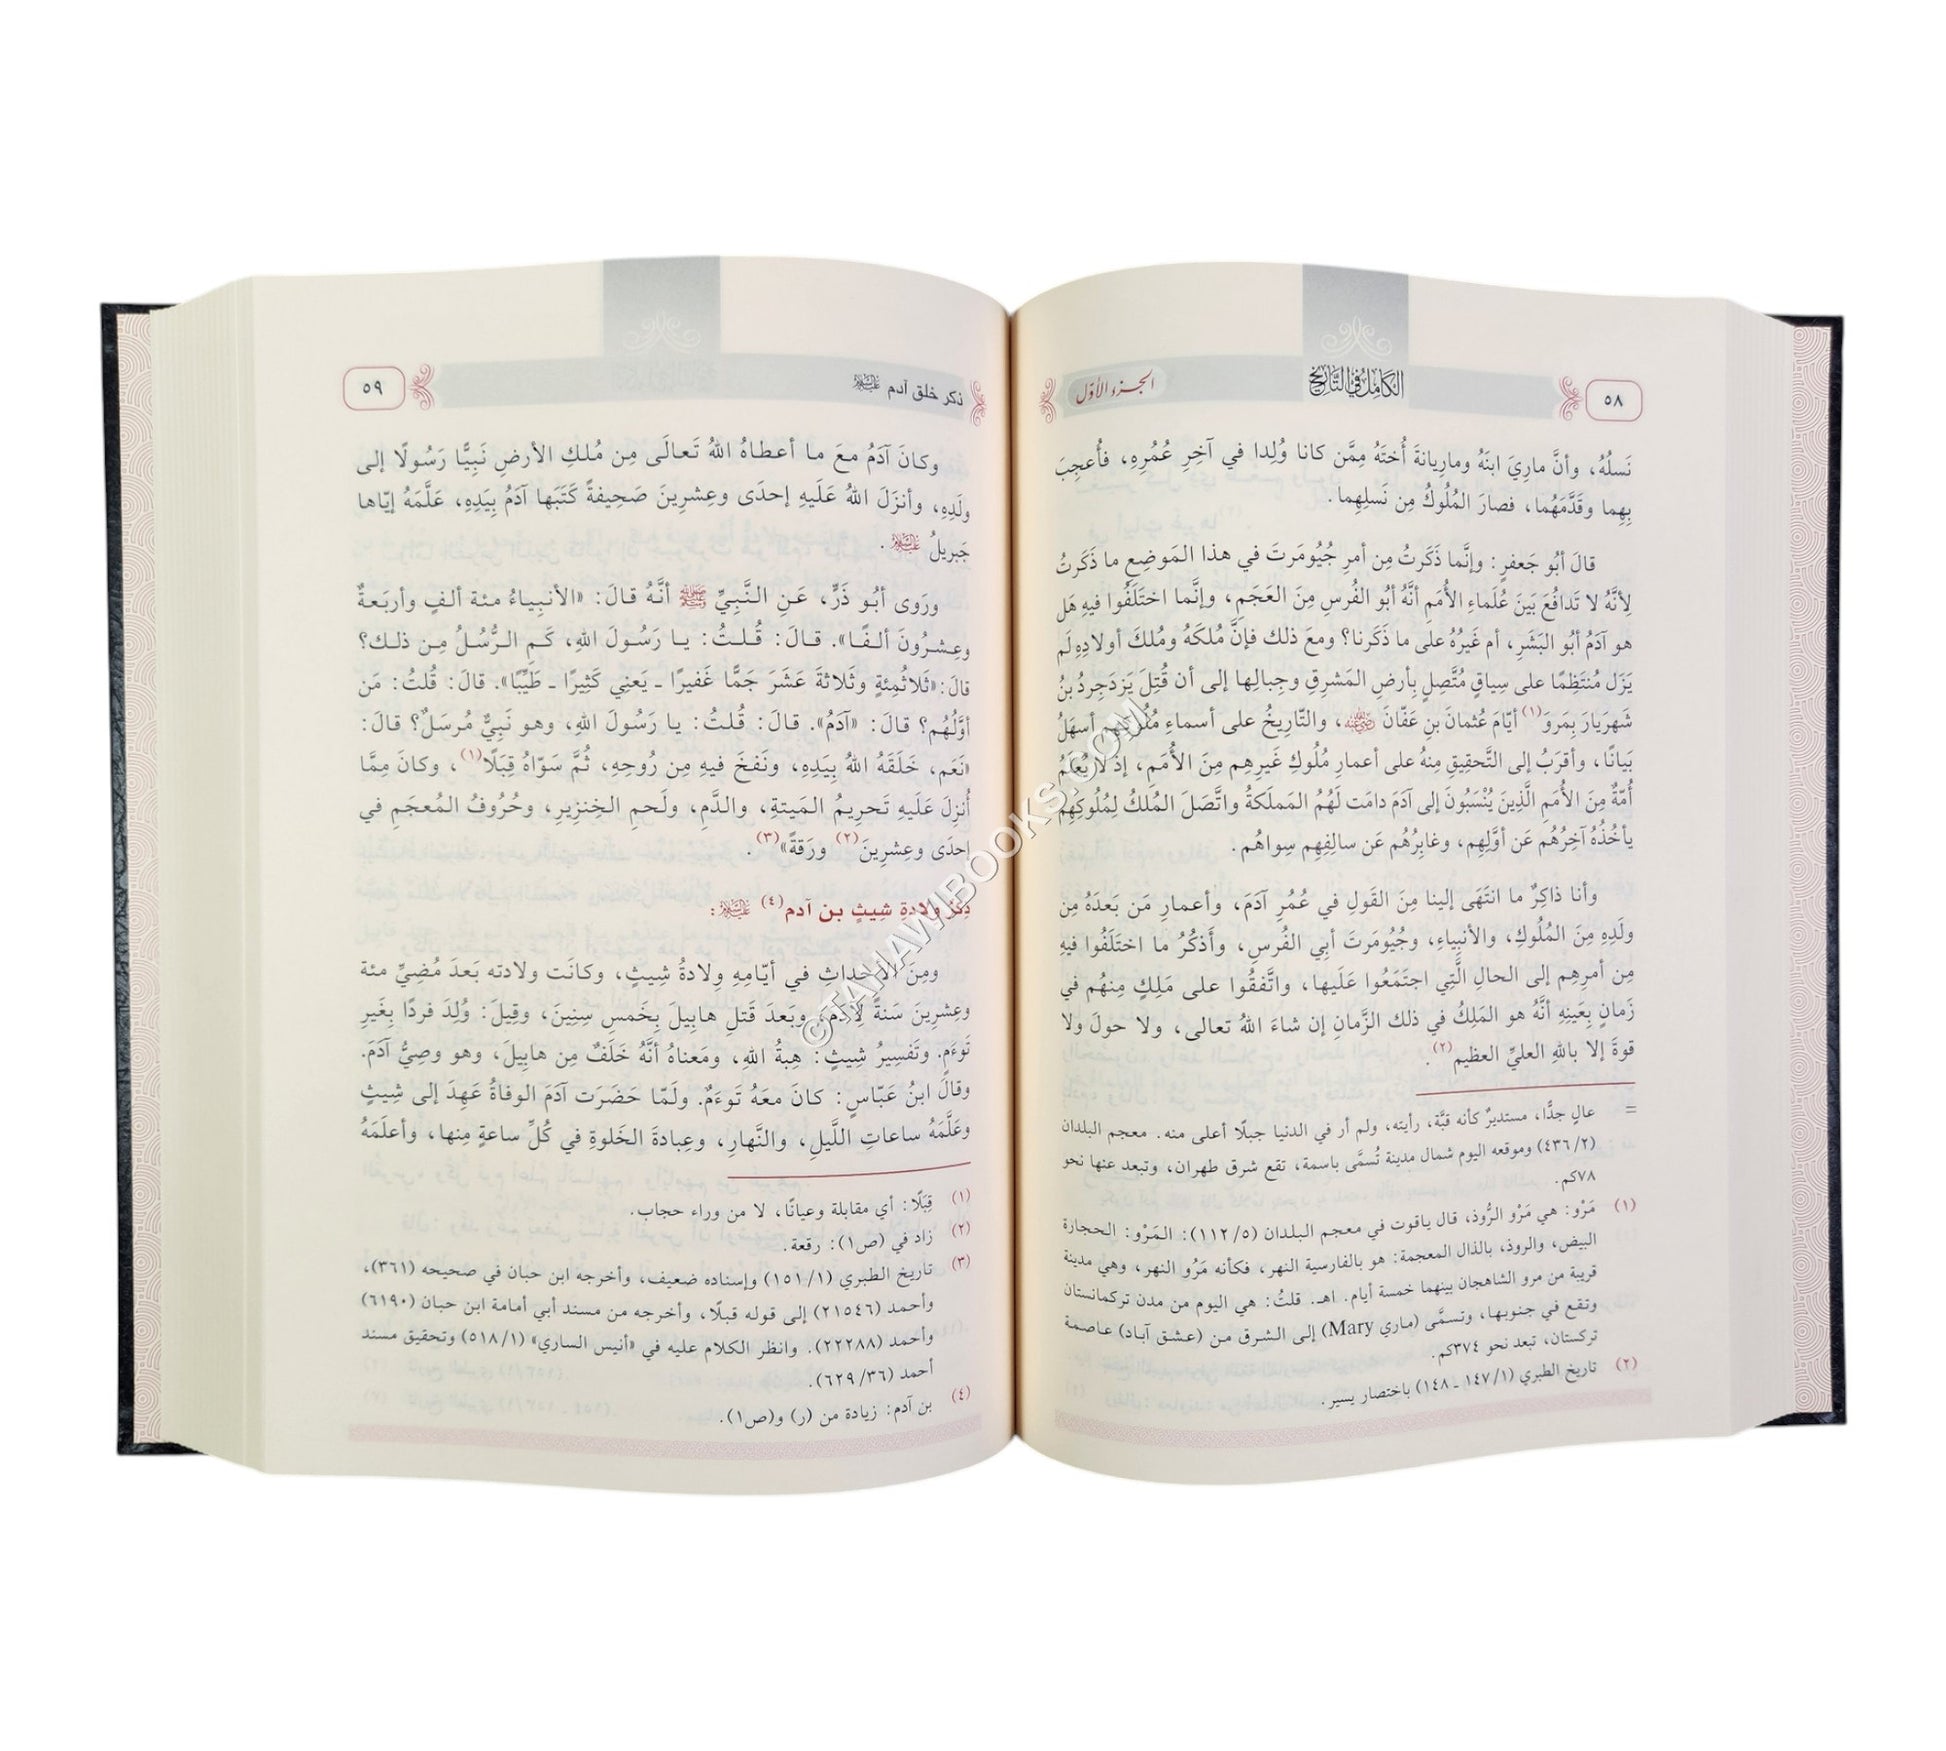 ٥٨
الكامل في التاريخ
الجزء الأول
نَسلُهُ، وأنَّ مارِيَ ابنَهُ ومارِيانةَ أُختَهُ مِمَّن كانا وُلِدا في آخِرِ عُمُرِهِ، فأُعجِبَ
بِهِما وقَدَّمَهُما، فصارَ المُلُوكُ مِن نَسلِهِما.
قالَ أبُو جَعفرٍ: وإنَّما ذَكَرتُ مِن أمرِ جُيُومَرتَ في هذا المَوضِعِ ما ذَكَرتُ
لِأنَّهُ لا تَدافُعَ بَينَ عُلَماءِ الأُمَمِ أنَّهُ أبُو الفُرسِ مِنَ العَجَمِ، وإنَّما اختَلَفُوا فيهِ هَل
هو آدَمُ أبُو البَشَرِ، أم غَيرُهُ على ما ذَكَرنا؟ ومعَ ذلك فإنَّ مُلكَهُ ومُلكَ أولادِهِ لَم
يَزَل مُنتَظِمًا على سِياقٍ مُتَّصِلٍ بِأرضِ المَشرِقِ وجِبالِها إلى أن قُتِلَ يَزدَجِردُ بنُ
شَهرَيارَ بِمَروَ(١) أيّامَ عُثمانَ بنِ عَفّانَ رضي الله عنه، والتّارِيخُ على أسماءِ مُلُوكِهِم أسهَلُ
بَيانًا، وأقرَبُ إلى التَّحقِيقِ مِنهُ على أعمارِ مُلُوكِ غَيرِهِم مِنَ الأُمَمِ، إذ لا يُعلَمُ
أُمّةٌ مِنَ الأُمَمِ الَّذِينَ يُنْسَبُونَ إلى آدَمَ دامَت لَهُم المَملَكةُ واتَّصَلَ المُلكُ لِمُلُوكِهِم
يأخُذُهُ آخِرُهُم عَن أوَّلِهِم، وغابِرُهُم عَن سالِفِهِم سِواهُم.
وأنا ذاكِرٌ ما انتَهَى إلينا مِنَ القَولِ في عُمُرِ آدَمَ، وأعمارِ مَن بَعدَهُ مِن
ولَدِهِ مِنَ المُلُوكِ، والأنبِياءِ، وجُيُومَرتَ أبِي الفُرسِ، وأَذكُرُ ما اختَلَفُوا فيهِ
مِن أمرِهِم إلى الحالِ الَّتِي اجتَمَعُوا عَلَيها، واتَّفقُوا على مَلِكٍ مِنهُم في
زَمانٍ بِعَينِهِ أنَّهُ هو المَلِكُ في ذلك الزَّمانِ إن شاءَ اللهُ تعالى، ولا حولَ ولا
قوةَ إلا باللهِ العليِّ العظيمِ(٢).
= عالٍ جدًّا، مستديرٌ كأنه قبَّة، رأيته، ولم أر في الدنيا جبلًا أعلى منه. معجم البلدان
(٢/ ٤٣٦) وموقعه اليوم شمال مدينة تُسمَّى باسمة، تقع شرق طهران، وتبعد عنها نحو
٧٨كم.
(١) مَرْو: هي مَرْو الرُّوذ، قال ياقوت في معجم البلدان (٥/ ١١٢): المَرْو: الحجارة
البيض، والروذ، بالذال المعجمة: هو بالفارسية النهر، فكأنه مَرْو النهر، وهي مدينة
قريبة من مرو الشاهجان بينهما خمسة أيام. اهـ. قلتُ: هي اليوم من مدن تركمانستان
وتقع في جنوبها، وتسمَّى (ماري Mary) إلى الشرق من (عشق آباد) عاصمة
تركستان، تبعد نحو ٣٧٤كم.
(٢) تاريخ الطبري (١/ ١٤٧ ـ ١٤٨) باختصار يسير.
ذكر خلق آدم عليه السلام
٥٩
وكانَ آدَمُ معَ ما أعطاهُ اللهُ تَعالَى مِن مُلكِ الأرضِ نَبِيًّا رَسُولًا إلى
ولَدِهِ، وأنزَلَ اللهُ عَلَيهِ إحدَى وعِشرِينَ صَحِيفةً كَتَبَها آدَمُ بِيَدِهِ، عَلَّمَهُ إيّاها
جَبرِيلُ عليه السلام.
ورَوى أبُو ذَرٍّ، عَنِ النَّبِيِّ صلى الله عليه وسلم أنَّهُ قالَ: «الأنبِياءُ مئة ألفٍ وأربَعةٌ
وعِشرُونَ ألفًا». قالَ: قُلتُ: يا رَسُولَ اللهِ، كَمِ الرُّسُلُ مِن ذلك؟
قالَ: «ثَلاثُمِئةٍ وثَلاثةَ عَشَرَ جَمًّا غَفيرًا ـ يَعنِي كَثِيرًا ـ طَيِّبًا». قالَ: قُلتُ: مَن
أوَّلُهُم؟ قالَ: «آدَمُ». قالَ: قُلتُ: يا رَسُولَ اللهِ، وهو نَبِيٌّ مُرسَلٌ؟ قالَ:
«نَعَم، خَلَقَهُ اللهُ بِيَدِهِ، ونَفَخَ فيهِ مِن رُوحِهِ، ثُمَّ سَوّاهُ قِبَلًا(١)، وكانَ مِمَّا
أُنزِلَ عَلَيهِ تَحرِيمُ المَيتةِ، والدَّمِ، ولَحمِ الخِنزِيرِ، وحُرُوفُ المُعجَمِ في
إحدَى وعِشرِينَ(٢) ورَقةً»(٣).
ذِكرُ ولادةِ شيثِ بن آدم(٤) عليه السلام:
ومِنَ الأحداثِ في أيّامِهِ وِلادةُ شِيثٍ، وكانَت ولادته بَعدَ مُضِيِّ مئة
وعِشرِينَ سَنةً لِآدَمَ، وبَعدَ قَتلِ هابِيلَ بِخَمسِ سِنِينَ، وقِيلَ: وُلِدَ فردًا بِغَيرِ
تَوءَمٍ. وتَفسِيرُ شِيثٍ: هِبةُ اللهِ، ومَعناهُ أنَّهُ خَلَفٌ مِن هابِيلَ، وهو وصِيُّ آدَمَ.
وقالَ ابنُ عَبّاسٍ: كانَ معَهُ تَوءَمٌ. ولَمّا حَضَرَت آدَمَ الوفاةُ عَهِدَ إلى شِيثٍ
وعَلَّمَهُ ساعاتِ اللَّيلِ، والنَّهارِ، وعِبادةَ الخَلوةِ في كُلِّ ساعةٍ مِنها، وأعلَمَهُ
(١) قِبَلًا: أي مقابلة وعيانًا، لا من وراء حجاب.
(٢) زاد في (ص١): رقعة.
(٣) تاريخ الطبري (١/ ١٥١) وإسناده ضعيف، وأخرجه ابن حبان في صحيحه (٣٦١)،
وأحمد (٢١٥٤٦) إلى قوله قبلًا، وأخرجه من مسند أبي أمامة ابن حبان (٦١٩٠)
وأحمد (٢٢٢٨٨). وانظر الكلام عليه في «أنيس الساري» (١/ ٥١٨) وتحقيق مسند
أحمد (٣٦/ ٦٢٩).
(٤) بن آدم: زيادة من (ر) و(ص١).
©TAHAWIBOOKS.COM